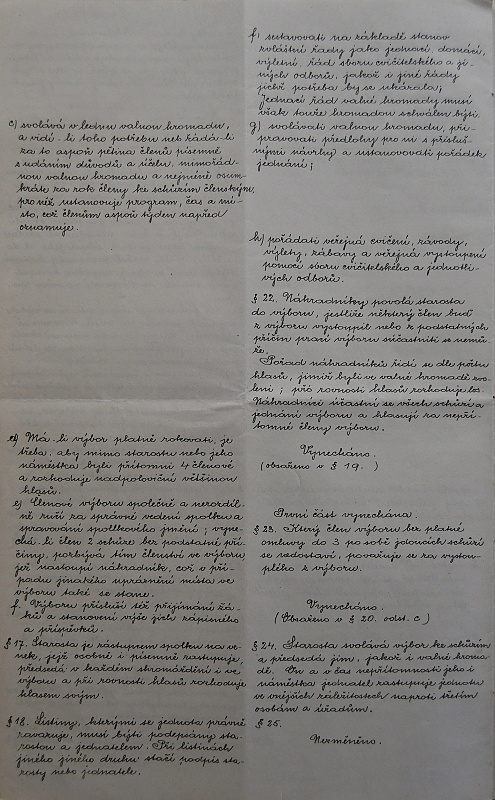 c) svolává v lednu valnou hromadu,
a vidí-li toho potřebu neb žádá-li
za to aspoň pětina členů písemně
s udáním důvodů a účelu, mimořád-
nou valnou hromadu a nejméně osm-
kráte za rok členy ke schůzím členským,
pro něž ustanovuje program, čas a mí-
sto, což členům aspoň týden napřed
oznamuje.
d) Má-li výbor platně rokovati, je
třeba, aby mimo starostu nebo jeho
náměstka byli přítomni 4 členové
a rozhoduje nadpoloviční většinou
hlasů.
e) Členové výboru společně a nerozdíl-
ně ručí za správné vedení spolku a
spravování spolkového jmění; vyne-
chá-li člen 2 schůze bez podstatné pří-
činy, pozbývá tím členství ve výboru
jež nastoupí náhradník, což v pří-
padu jinakého uprázdnění místa ve
výboru také se stane.
f. Výboru přísluší též přijímání žá-
ků a stanovení výše jich zápisného
a příspěvků.
§ 17. Starosta je zástupcem spolku na ve-
nek, jejž osobně i písemně zastupuje,
předsedá v každém shromáždění i ve
výboru a při rovnosti hlasů rozhoduje
hlasem svým.
§ 18. Listiny, kterými se jednota právně
zavazuje, musí býti podepsány sta-
rostou a jednatelem. Při listinách
jiného druhu stačí podpis sta-
rosty nebo jednatele.
f) sestavovati na základě stanov
zvláštní řády jako jednací, domácí,
výletní, řád sboru cvičitelského a ji-
ných odborů, jakož i jiné řády
jichž potřeba by se ukázala;
Jednací řád valné hromady musí
však touže hromadou schválen býti.
g) svolávati valnou hromadu, při-
pravovati předlohy pro ni s přísluš-
nými návrhy a ustanovovati pořádek
jednání;
h) pořádati veřejná cvičení, závody,
výlety, zábavy a veřejná vystoupení
pomocí sboru cvičitelského a jednotli-
vých odborů.
§ 22. Náhradníky povolá starosta
do výboru, jestliže některý člen buď
z výboru vystoupil nebo z podstatných
příčin prací výboru súčastniti se nemů-
že.
Pořad náhradníků řídí se dle počtu
hlasů, jimiž byli ve valné hromadě zvo-
leni; při rovnosti hlasů rozhoduje los.
Náhradníci účastní se všech schůzí a
jednání výboru a hlasují za nepří-
tomné členy výboru.
Vynecháno.
(obsaženo v § 19.)
První část vynechána.
§ 23. Který člen výboru bez platné
omluvy do 3 po sobě jdoucích schůzí
se nedostaví, považuje se za vystou-
plého z výboru.
Vynecháno.
(Obsaženo v § 20. odst. c)
§ 24. Starosta svolává výbor ke schůzím
a předsedá jim, jakož i valné hroma-
dě. On a v čas nepřítomnosti jeho i
náměstka jednatel zastupuje jednotu
ve vnějších záležitostech naproti třetím
osobám a úřadům.
§ 25.
Nezměněno.